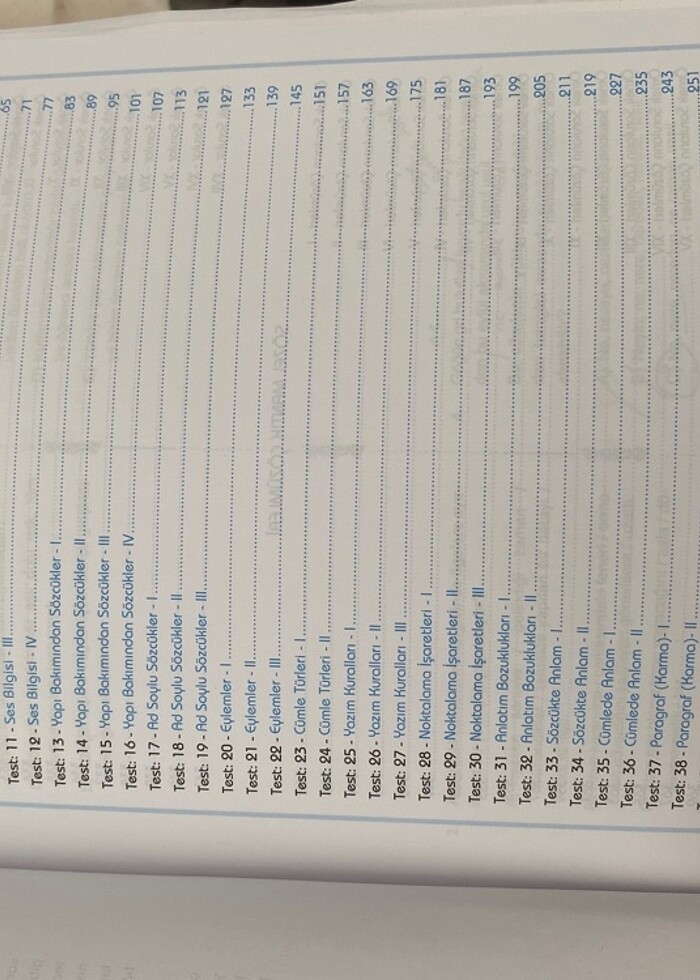 Test: 11 - Ses Bilgisi - III 65
Test: 12 - Ses Bilgisi - IV 71
Test: 13 - Yapı Bakımından Sözcükler - I 77
Test: 14 - Yapı Bakımından Sözcükler - II 83
Test: 15 - Yapı Bakımından Sözcükler - III 89
Test: 16 - Yapı Bakımından Sözcükler - IV 95
Test: 17 - Ad Soylu Sözcükler - I 101
Test: 18 - Ad Soylu Sözcükler - II 107
Test: 19 - Ad Soylu Sözcükler - III 113
Test: 20 - Eylemler - I 121
Test: 21 - Eylemler - II 127
Test: 22 - Eylemler - III 133
Test: 23 - Cümle Türleri - I 139
Test: 24 - Cümle Türleri - II 145
Test: 25 - Yazım Kuralları - I 151
Test: 26 - Yazım Kuralları - II 157
Test: 27 - Yazım Kuralları - III 163
Test: 28 - Noktalama İşaretleri - I 169
Test: 29 - Noktalama İşaretleri - II 175
Test: 30 - Noktalama İşaretleri - III 181
Test: 31 - Anlatım Bozuklukları - I 187
Test: 32 - Anlatım Bozuklukları - II 193
Test: 33 - Sözcükte Anlam - I 199
Test: 34 - Sözcükte Anlam - II 205
Test: 35 - Cümlede Anlam - I 211
Test: 36 - Cümlede Anlam - II 219
Test: 37 - Paragraf (Karma)- I 227
Test: 38 - Paragraf (Karma)- II 235
243
251